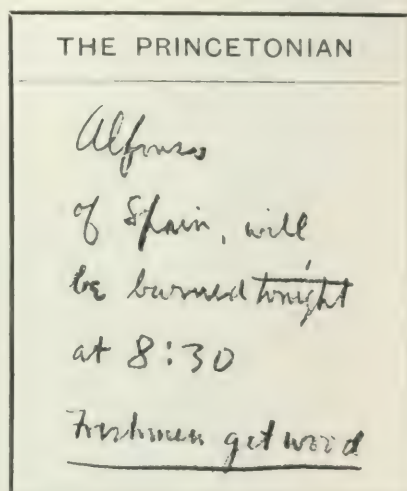 THE PRINCETONIAN
Alfonso
of Spain, will
be burned tonight
at 8:30
Freshmen get wood